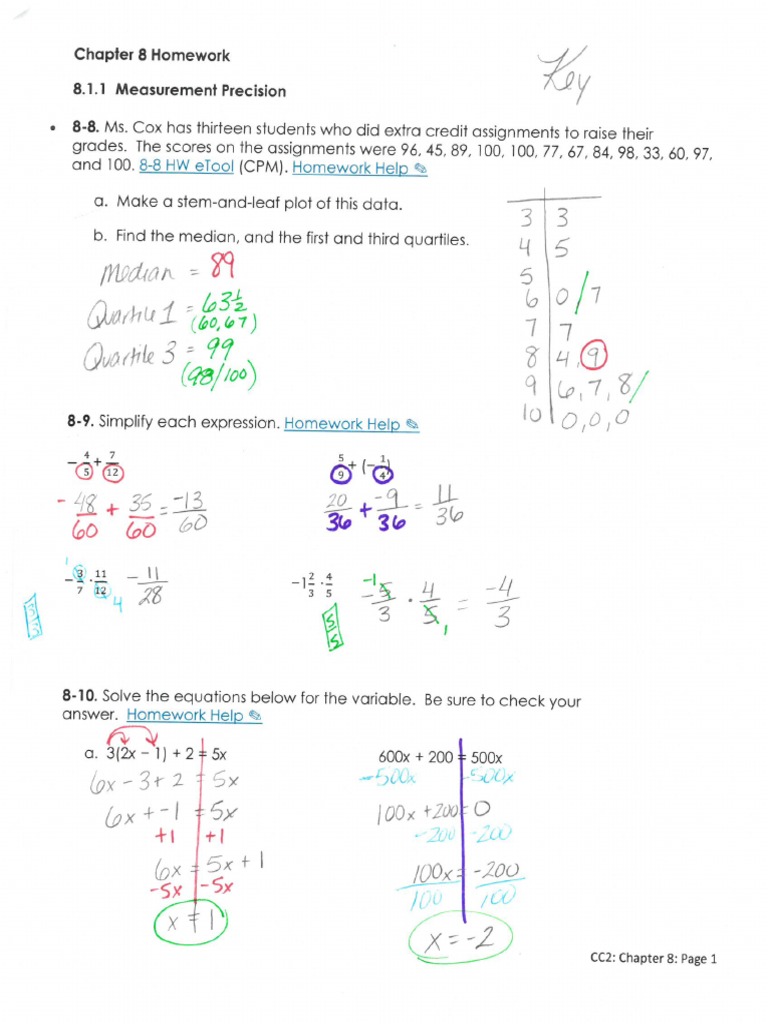 Chapter 8 Homework
Key
8.1.1 Measurement Precision
• 8-8. Ms. Cox has thirteen students who did extra credit assignments to raise their
grades. The scores on the assignments were 96, 45, 89, 100, 100, 77, 67, 84, 98, 33, 60, 97,
and 100. 8-8 HW eTool (CPM). Homework Help ✎
a. Make a stem-and-leaf plot of this data.
b. Find the median, and the first and third quartiles.
Median = 89
Quartile 1 = 63 1/2
(60,67)
Quartile 3 = 99
(98/100)
3 | 3
4 | 5
5 |
6 | 0/7
7 | 7
8 | 4, 9
9 | 6, 7, 8/
10 | 0, 0, 0
8-9. Simplify each expression. Homework Help ✎
-4/5 + 7/12
-48/60 + 35/60 = -13/60
5/9 + (-1/4)
20/36 + -9/36 = 11/36
-3/7 · 11/12 -11/28
1
4
3/3
-1 2/3 · 4/5
-5/3 · 4/5 = -4/3
-1
1
5/5
8-10. Solve the equations below for the variable. Be sure to check your
answer. Homework Help ✎
a. 3(2x - 1) + 2 = 5x
6x - 3 + 2 = 5x
6x + -1 = 5x
+1 +1
6x = 5x + 1
-5x -5x
x = 1
600x + 200 = 500x
-500x -500x
100x + 200 = 0
-200 -200
100x = -200
100 100
x = -2
CC2: Chapter 8: Page 1